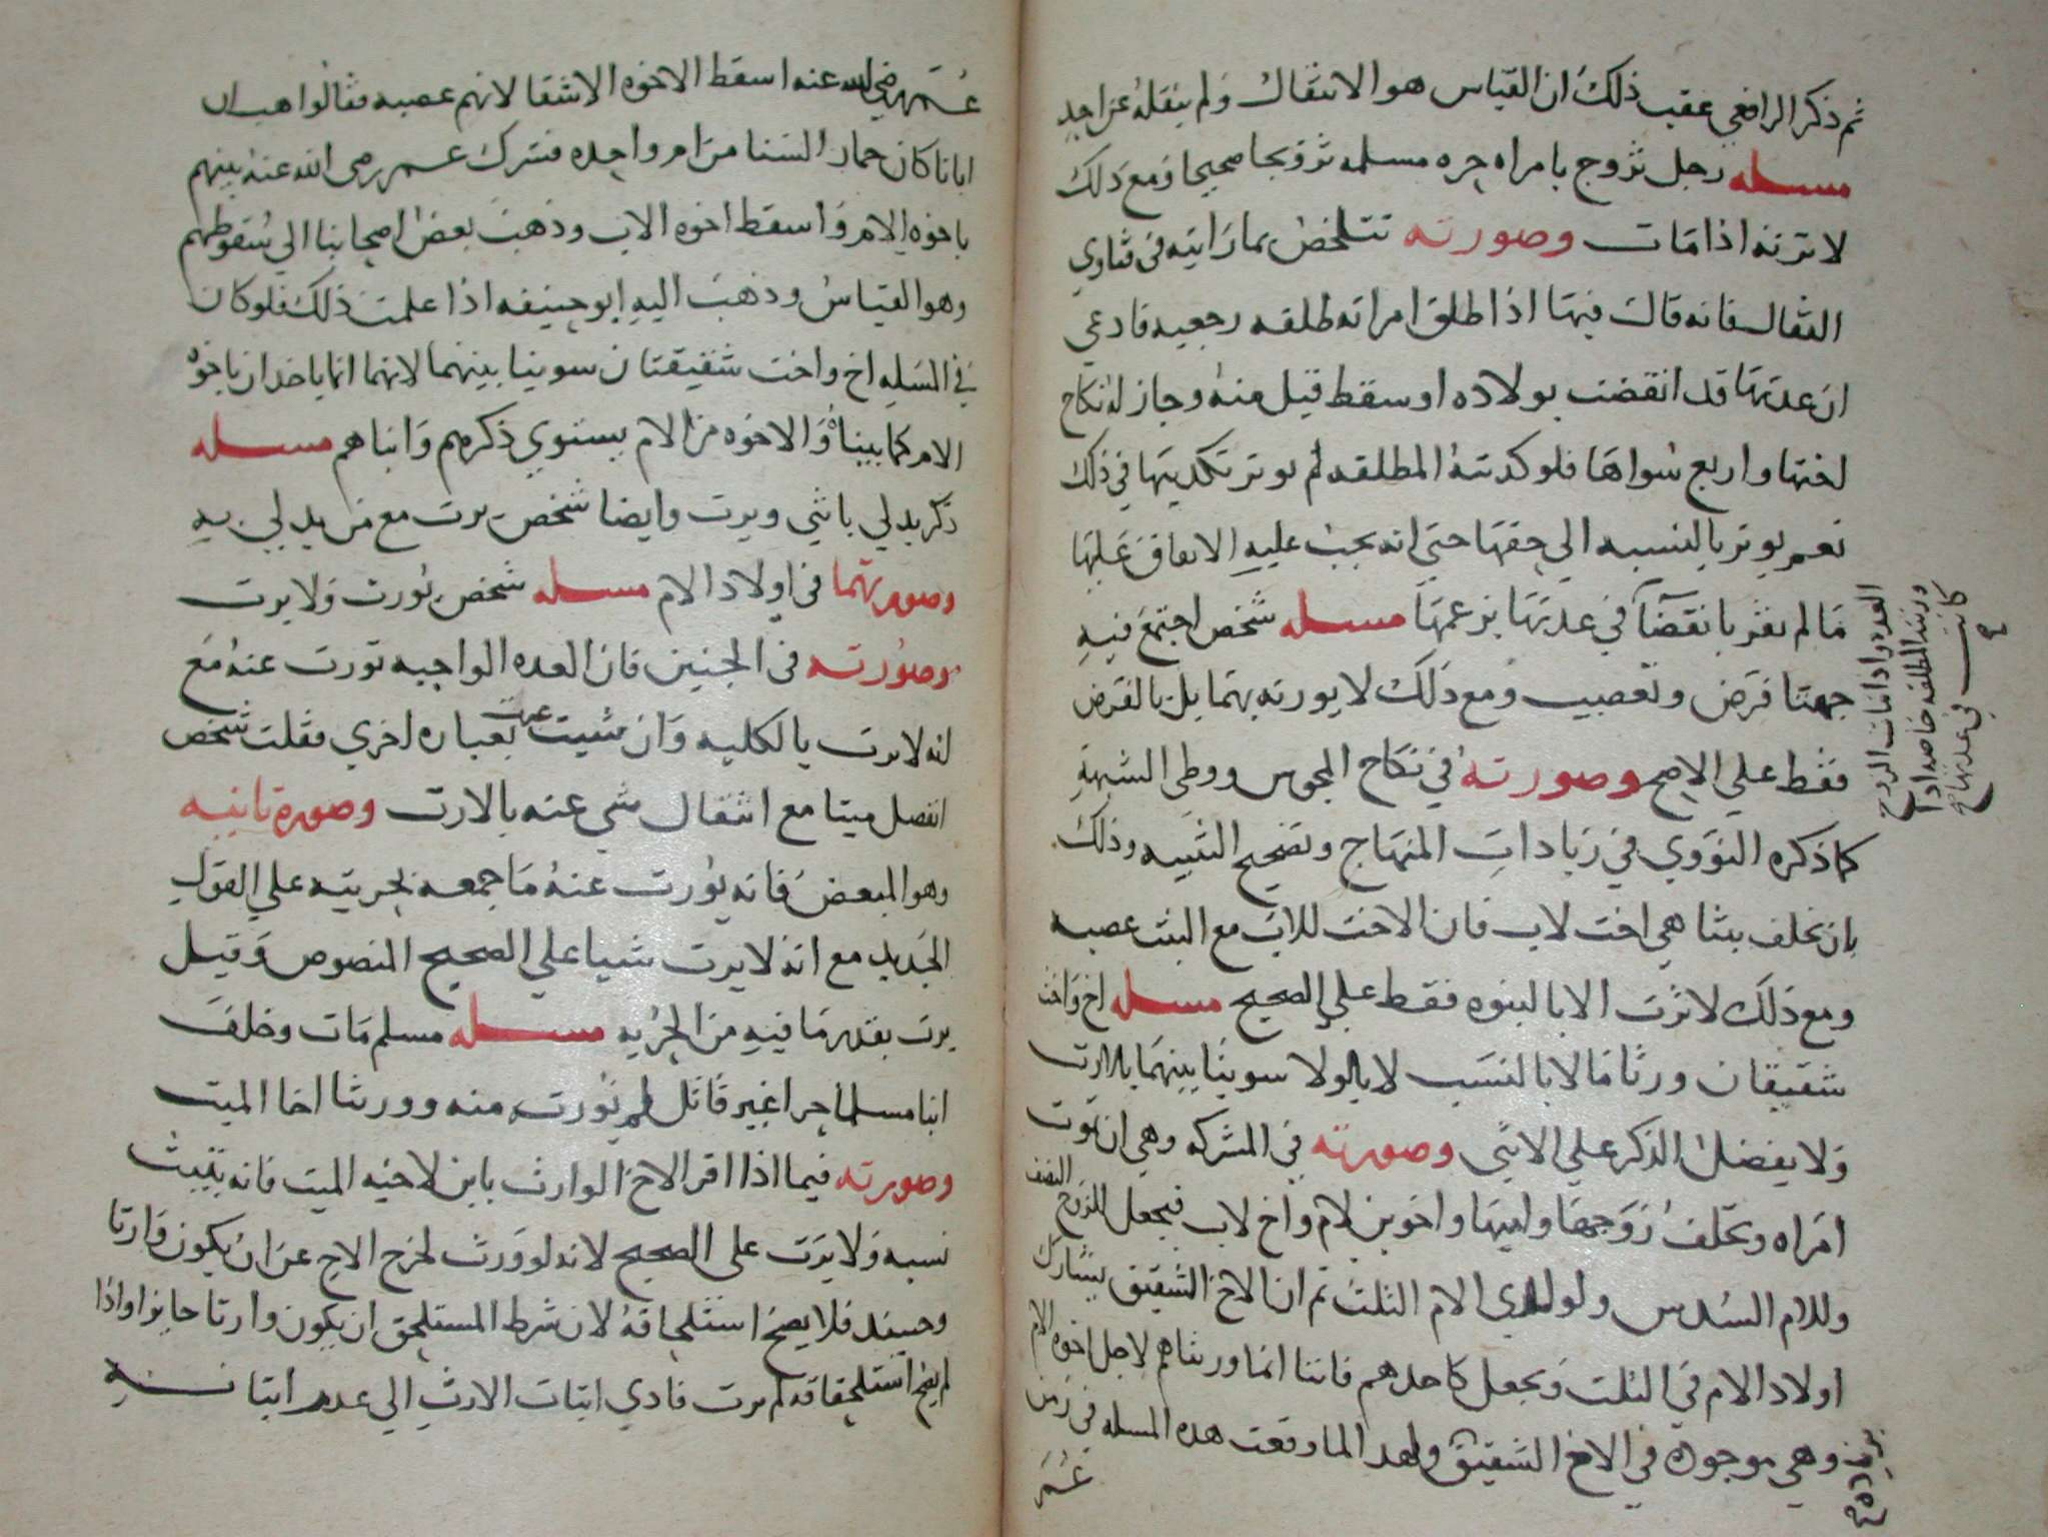 ثم ذكر الرافعي عقب ذلك ان القياس هو الانتقال ولم ينقله عن احد
مسله رجل تزوج بامراه حره مسلمه تزوجا صحيحا ومع ذلك
لا ترثه اذا مات وصورته تتلخص بما رايته في فتاوي
القفال فانه قال فيها اذا طلق امراته طلقه رجعيه فادعي
ان عدتها قد انقضت بولاده او سقط قبل منه وجاز له نكاح
اختها واربع سواها فلو كذبته المطلقه لم يوثر تكذيبها في ذلك
نعم يوثر بالنسبه الي حقها حتي انه يجب عليه الانفاق عليها
ما لم تقر بانقضا في عدتها بزعمها مسله شخص اجتمع فيه
جهتا فرض وتعصيب ومع ذلك لا يورثه بهما بل بالفرض
فقط علي الاصح وصورته في نكاح المجوس ووطى الشبهة
كما ذكره النووي في زيادات المنهاج وتصحيح التنبيه وذلك
بان تخلف بنتا هي اخت لاب فان الاخت للاب مع البنت عصبه
ومع ذلك لا ترث الا بالبنوه فقط علي الصحيح مسله اخ واخت
شقيقان ورثا مالا بالنسب لا بالولا سوينا بينهما بالارث
ولا يفضل الذكر علي الانثي وصورته في المشركه وهي ان تموت
امراه وتخلف زوجها وامها واخوين لام واخ لاب فيجعل للزوج النصف
وللام السدس ولولدي الام الثلث ثم ان الاخ الشقيق يشارك
اولاد الام في الثلث ويجعل كاحدهم فاننا انما ورثناهم لاجل اخوه الام
وهي موجوده في الاخ الشقيق ولهذا لما وقعت هذه المسله في زمن
عمر
العده واذا مات الزوج
ورثته المطلقه خاصه اذا
كانت في عدتها
عمر رضي الله عنه اسقط الاخوه الاشقا لانهم عصبه فقالوا هب ان
ابانا كان حمارا لسنا من ام واحده فشرك عمر رضى الله عنه بينهم
باخوه الام واسقط اخوه الاب وذهب بعض اصحابنا الي سقوطهم
وهو القياس وذهب اليه ابو حنيفه اذا علمت ذلك فلو كان
في المسله اخ واخت شقيقتان سوينا بينهما لانهما انما ياخذان باخوه
الام كما بيناه والاخوه من الام يستوي ذكرهم وانثاهم مسله
ذكر يدلي بانثي ويرث وايضا شخص يرث مع من يدلي به
وصورتهما في اولاد الام مسله شخص يورث ولا يرث
وصورته في الجنين فان الغره الواجبه تورث عنه مع
انه لا يرث بالكليه وان شيت عبرت بعباره اخري فقلت شخص
انفصل ميتا مع انتقال شي عنه بالارث وصوره ثانيه
وهو المبعض فانه يورث عنه ما جمعه بحريته علي القول
الجديد مع انه لا يرث شيا علي الصحيح المنصوص وقيل
يرث بقدر ما فيه من الحريه مسله مسلم مات وخلف
ابنا مسلما حرا غير قاتل لم يورث منه وورثنا اخا الميت
وصورته فيما اذا اقر الاخ الوارث بابن لاخيه الميت فانه يثبت
نسبه ولا يرث على الصحيح لانه لو ورث لخرج الاخ عن ان يكون وارثا
وحينئذ فلا يصح استلحاقه لان شرط المستلحق ان يكون وارثا حايزا واذا
لم يصح استلحاقه لم يرث فادي اثبات الارث الي عدم اثبات نسبه